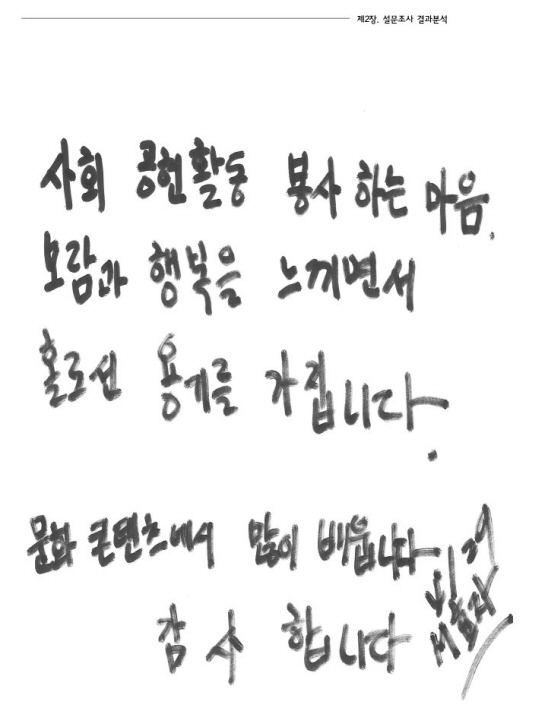 제2장. 설문조사 결과분석
사회 공헌활동 봉사 하는 마음.
보람과 행복을 느끼면서
홀로선 용기를 가집니다.
문화 콘텐츠에서 많이 배웁니다
감사 합니다